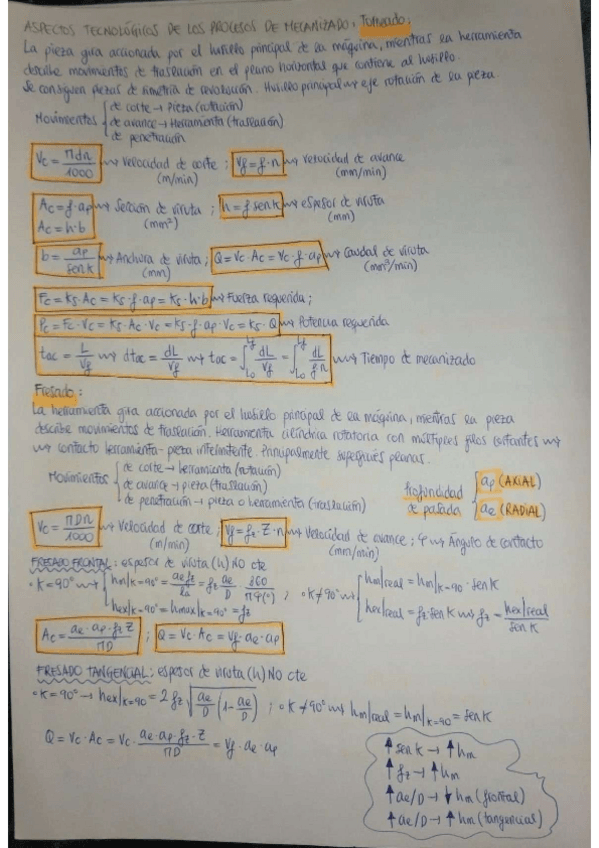 ASPECTOS TECNOLÓGICOS DE LOS PROCESOS DE MECANIZADO: Torneado:
La pieza gira accionada por el husillo principal de la máquina, mientras la herramienta
describe movimientos de traslación en el plano horizontal que contiene al husillo.
Se consiguen piezas de simetría de revolución. Husillo principal → eje rotación de la pieza.
Movimientos { de corte → Pieza (rotación)
de avance → Herramienta (traslación)
de penetración
Vc = πdn/1000 → Velocidad de corte (m/min) ; Vf = f·n → Velocidad de avance (mm/min)
Ac = f·ap
Ac = h·b → Sección de viruta (mm²) ; h = f senK → espesor de viruta (mm)
b = ap/senK → Anchura de viruta (mm) ; Q = Vc·Ac = Vc·f·ap → Caudal de viruta (mm³/min)
Fc = Ks·Ac = Ks·f·ap = Ks·h·b → Fuerza requerida ;
Pc = Fc·Vc = Ks·Ac·Vc = Ks·f·ap·Vc = Ks·Q → Potencia requerida
toc = L/Vf → dtoc = dL/Vf → toc = ∫Lo Lf dL/Vf = ∫Lo Lf dL/f·n → Tiempo de mecanizado
Fresado:
La herramienta gira accionada por el husillo principal de la máquina, mientras la pieza
describe movimientos de traslación. Herramienta cilíndrica rotatoria con múltiples filos cortantes →
→ contacto herramienta-pieza intermitente. Principalmente superficies planas.
Movimientos { de corte → herramienta (rotación)
de avance → pieza (traslación)
de penetración → pieza o herramienta (traslación)
profundidad de pasada { ap (AXIAL)
ae (RADIAL)
Vc = πDn/1000 → Velocidad de corte (m/min) ; Vf = fz·Z·n → Velocidad de avance (mm/min) ; φ → Ángulo de contacto
FRESADO FRONTAL: espesor de viruta (h) NO cte
∘ K = 90° → { hm|K=90° = ae fz/ls = fz ae/D · 360/πφ(°) ; ∘ K≠90° → { hm|real = hm|K=90 · senK
hex|K=90° = hmax|K=90° = fz
hex|real = fz·senK → fz = hex|real/senK
Ac = ae·ap·fz Z/πD ; Q = Vc·Ac = Vf·ae·ap
FRESADO TANGENCIAL: espesor de viruta (h) NO cte
∘ K = 90° → hex|K=90 = 2 fz √(ae/D (1-ae/D)) ; ∘ K≠90° → hm|real = hm|K=90 = senK
Q = Vc·Ac = Vc · ae·ap·fz·Z/πD = Vf·ae·ap
↑ senK → ↑ hm
↑ fz → ↑ hm
↑ ae/D → ↓ hm (frontal)
↑ ae/D → ↑ hm (tangencial)